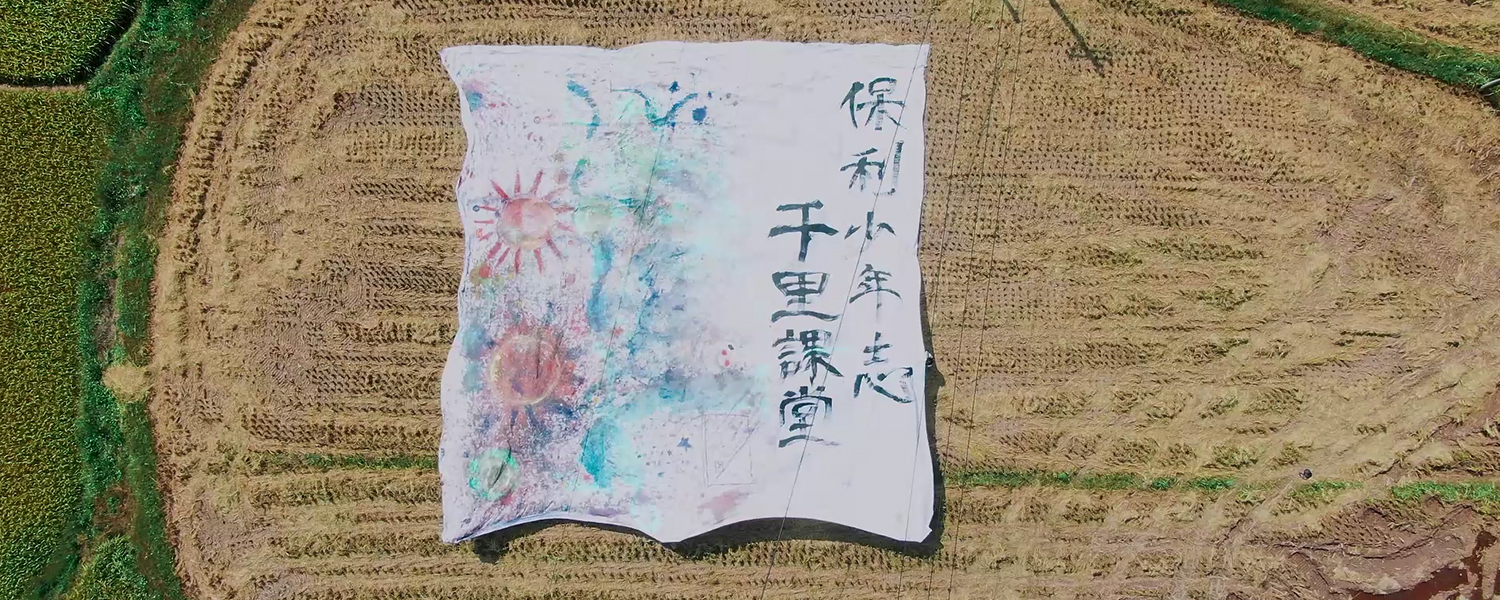 保利小年志
千里課堂